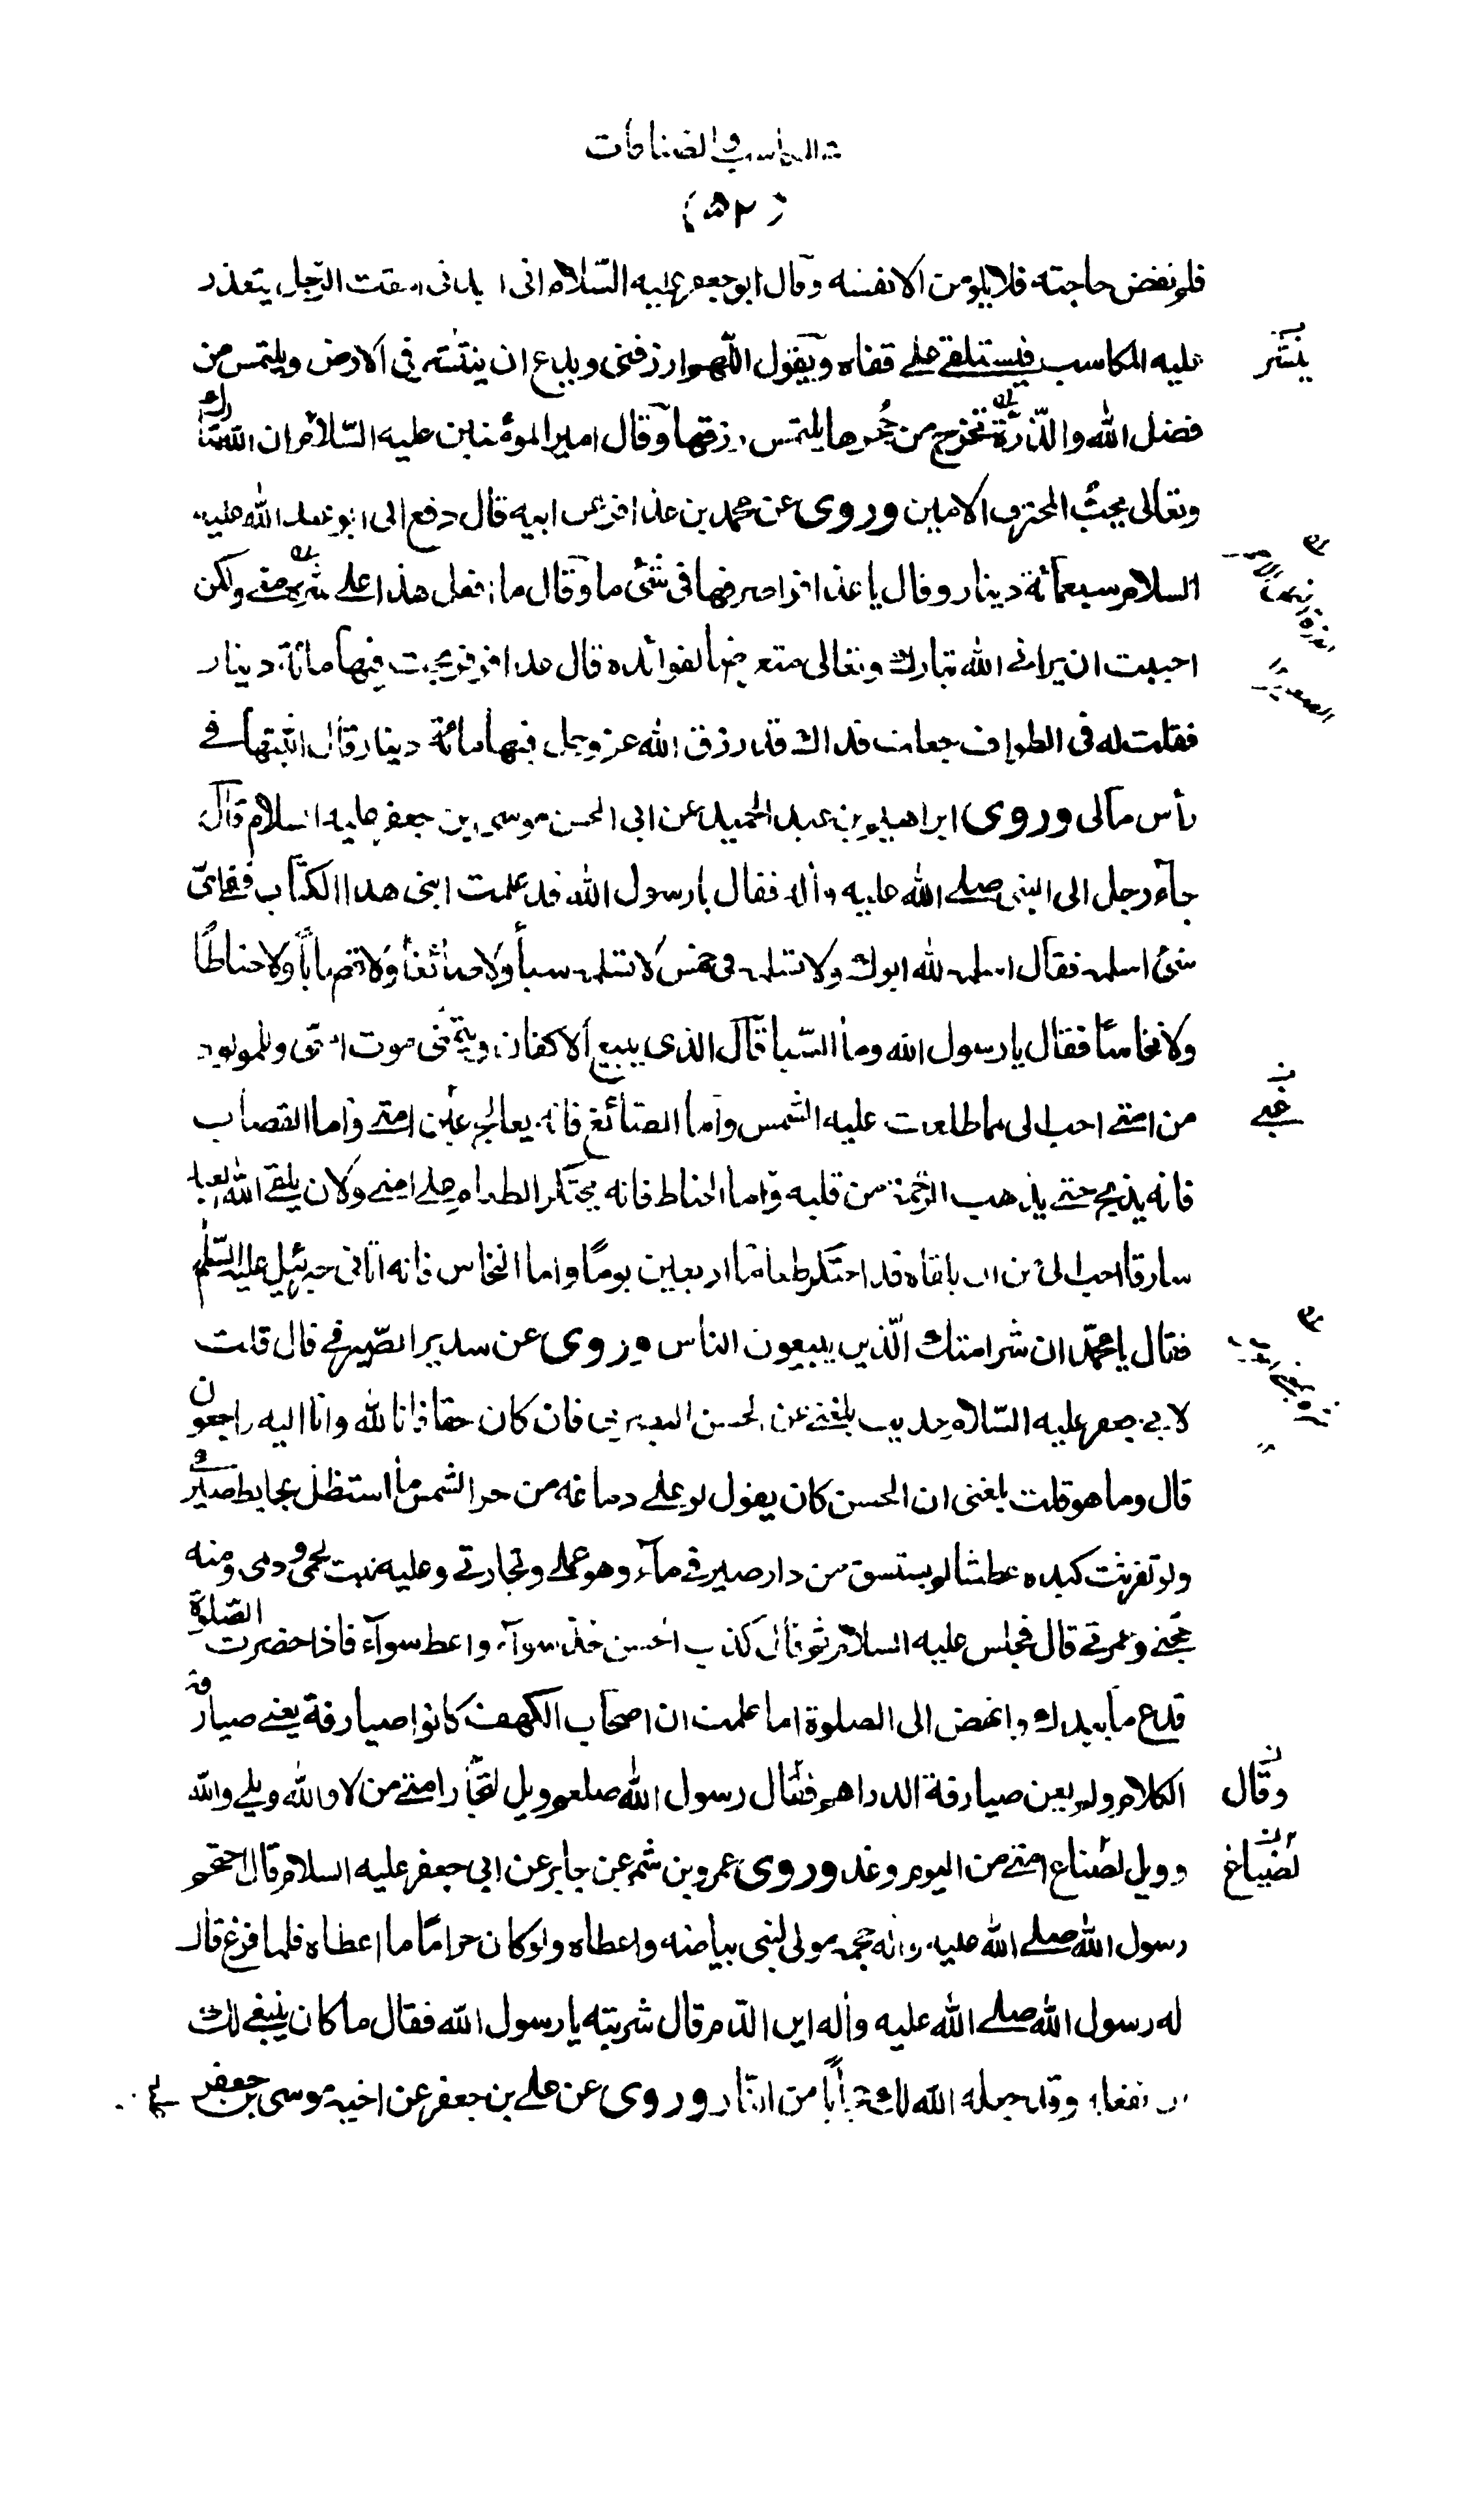 المكاسب و الصناعات
(۵۲)
فلم تفض حاجته فلا يلومن الا نفسه وقال ابو جعفر عليه السّلام انى اجدنى امقت الرّجل يتعذر
عليه المكاسب فيستلقے علے قفاه ويقول اللّهم ارزقنى ويدع ان ينتشر فى الارض ويلتمس من
ينشر
فضل الله والذّرّة تخرج من جُحرها يلتمس رزقها وقال امير المؤمنين عليه السّلام ان الله تبارك
وتعالى يحبّ المحترف الامين وروى عن محمد بن عذافر عن ابيه قال دفع الى ابو عبد الله عليه
السلام سبعمائة دينار وقال يا عذافر اصرفها فى شئ ما وقال ما افعل هذا على شره منے ولكن
احببت ان يرانے الله تبارك وتعالى متعرضا لفوائده قال عذافر فربحت فيها مائة دينار
فقلت له فى الطواف جعلت فداك قد رزق الله عز وجل فيها مائة دينار قال اثبتها فے
رأس مالى وروى ابراهيم بن عبد الحميد عن ابى الحسن موسى بن جعفر عليه السلام قال
جاء رجل الى النبى صلے الله عليه وآله فقال يا رسول الله قد علمت ابنى هذا الكتاب ففى اىّ
شئ اسلمه فقال اسلمه لله ابوك ولا تسلمه فى خمس لا تسلمه سبأ ولا صائغا ولا قصابا ولا حناطًا
ولا نخاسا فقال يا رسول الله وما السّبا قال الذى يبيع الاكفان ويتمنى موت امتى وللمولود
من امتے احب الى مما طلعت عليه الشمس واما الصائغ فانه يعالج غبن امتے واما القصاب
غنے
فانه يذبح حتے يذهب الرّحمة من قلبه واما الحناط فانه يحتكر الطعام علے امتے ولان يلقے الله العبد
سارقا احب الى من ان يلقاه قد احتكر طعاما اربعين يومًا واما النخاس فانه اتانى جبرئيل عليه السّلم
فقال يا محمّد ان شر امتك الّذين يبيعون الناس وروى عن سدير الصّيرفے قال قلت
لابى جعفر عليه السّلام حديث بلغنے عن الحسن البصرى فان كان حقا فانا لله وانا اليه راجعون
قال وما هو قلت بلغنى ان الحسن كان يقول لو غلے دماغه من حر الشمس ما استظل بحايط صيرفے
ولو تفرثت كبده عطشا لم يستسق من دار صيرفے ماء وهو عملے وتجارتے وعليه نبت لحمى ودمى ومنه
حجنے وعمرتے قال فجلس عليه السلام ثم قال كذب الحسن خذ سواء واعط سواء فاذا حضرت الصّلوة
فدع ما بيدك وانهض الى الصلوة اما علمت ان اصحاب الكهف كانوا صيارفة يعنے صيارفة
الكلام ولم يعن صيارفة الدراهم فقال رسول الله صلعم ويل لتجار امتے من لا والله وبلے والله
وقال
وويل لصناع امتے من اليوم وغد وروى عمرو بن شمر عن جابر عن ابى جعفر عليه السلام قال احتجم
لصباغ
رسول الله صلے الله عليه وآله حجمه مولى لبنى بياضه واعطاه ولو كان حرامًا ما اعطاه فلما فرغ قال
له رسول الله صلے الله عليه وآله اين الدّم قال شربته يا رسول الله فقال ما كان ينبغے لك
ان تفعله وقد جعله الله لك حجابا من النّار وروى عن علے بن جعفر عن اخيه موسى بن جعفر